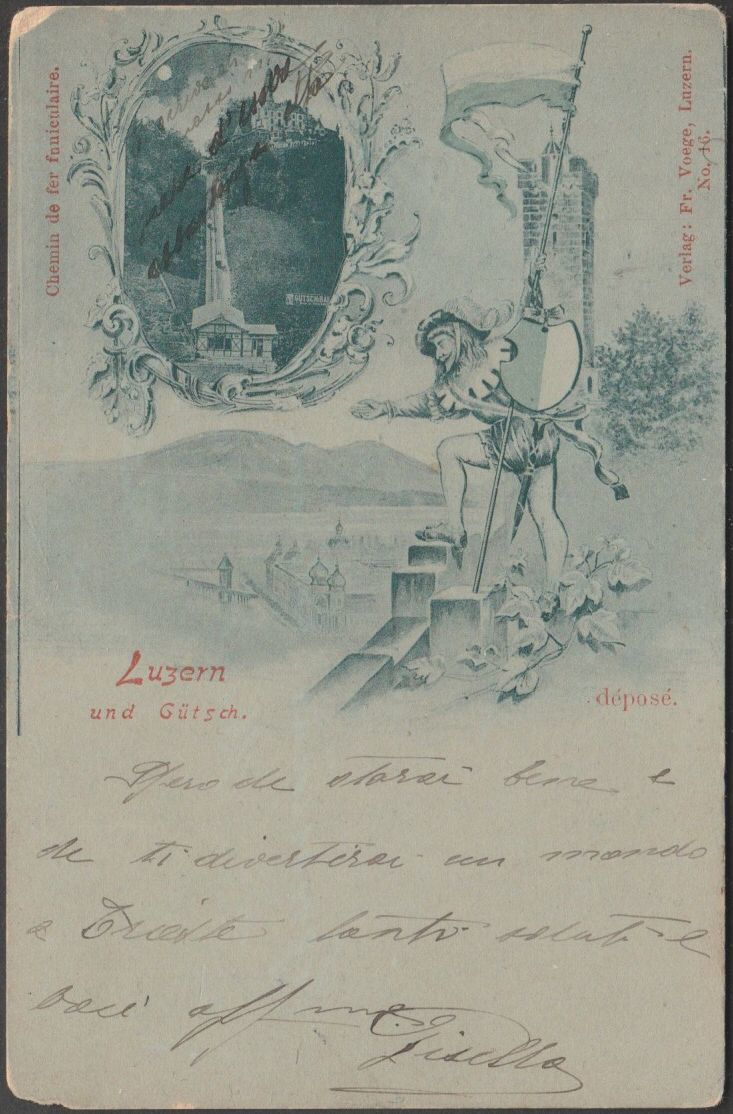 Chemin de fer funiculaire.
Verlag: Fr. Voege, Luzern.
No. 16.
GÜTSCHBAHN
Luzern
und Gütsch.
déposé.
Spero che starai bene e
che ti divertirai un mondo
a Trieste tanti saluti e
baci affme
Gisella